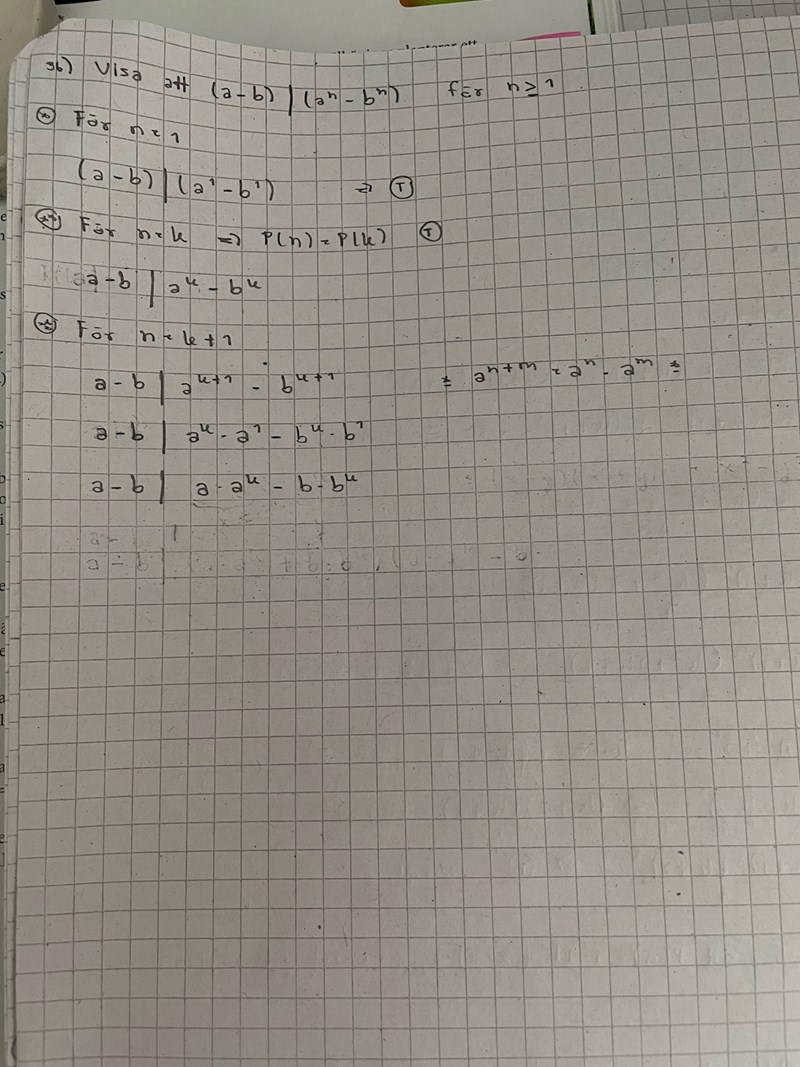 36) Visa att (a-b) | (aⁿ - bⁿ) för n ≥ 1
(*) För n = 1
(a-b) | (a¹ - b¹) ⇒ (T)
(**) För n = k => P(n) = P(k) (T)
a-b | aᵏ - bᵏ
För n = k + 1
a-b | aᵏ⁺¹ - bᵏ⁺¹ * aⁿ⁺ᵐ = aⁿ · aᵐ *
a-b | aᵏ · a¹ - bᵏ · b¹
a-b | a · aᵏ - b · bᵏ